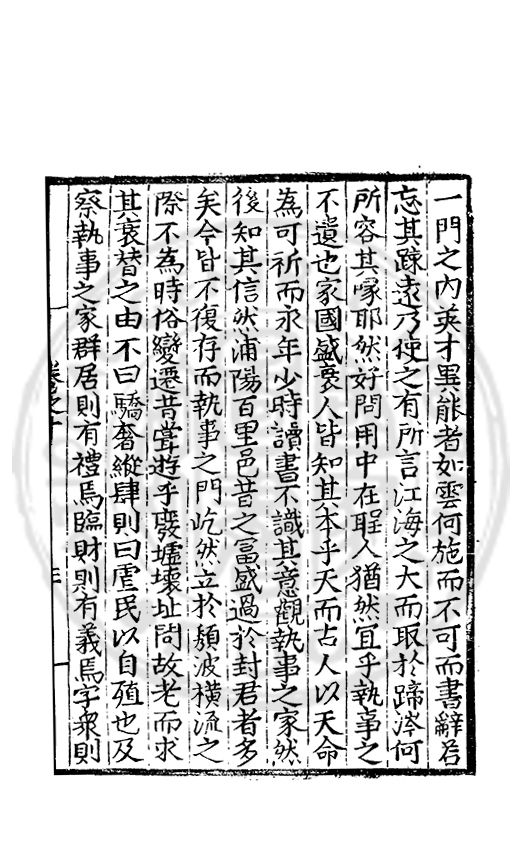 一門之內英才異能者如雲何施而不可而書辭若
忘其踈遠乃使之有所言江海之大而取於蹄涔何
所容其喙耶然好問用中在聖人猶然宜乎執事之
不遺也家國盛衰人皆知其本乎天而古人以天命
為可祈而永年少時讀書不識其意觀執事之家然
後知其信然浦陽百里邑昔之富盛過於封君者多
矣今皆不復存而執事之門屹然立於頹波橫流之
際不為時俗變遷昔嘗遊乎廢墟壞址問故老而求
其衰替之由不曰驕奢縱肆則曰虐民以自殖也及
察執事之家群居則有禮焉臨財則有義焉字衆則